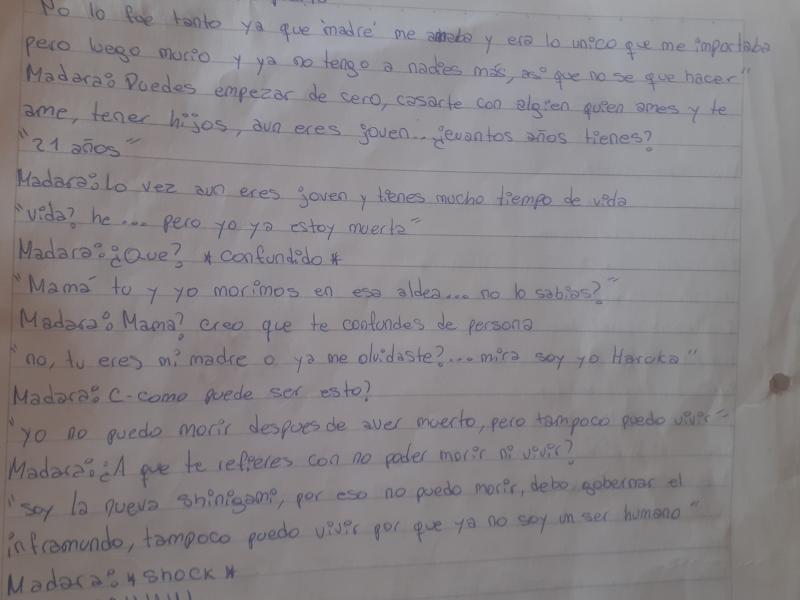 No lo fue tanto ya que 'madre' me amaba y era lo unico que me importaba
pero luego murio y ya no tengo a nadies más, asi que no se que hacer"
Madara: Puedes empezar de cero, casarte con algien quien ames y te
ame, tener hijos, aun eres joven... ¿cuantos años tienes?
"21 años"
Madara: lo vez aun eres joven y tienes mucho tiempo de vida
"vida? he... pero yo ya estoy muerta"
Madara: ¿Que? *confundido*
"Mamá tu y yo morimos en esa aldea... no lo sabias?"
Madara: Mama? creo que te confundes de persona
"no, tu eres mi madre o ya me olvidaste?... mira soy yo Haroka"
Madara: C-como puede ser esto?
"yo no puedo morir despues de aver muerto, pero tampoco puedo vivir"
Madara: ¿A que te refieres con no poder morir ni vivir?
"soy la nueva shinigami, por eso no puedo morir, debo gobernar el
inframundo, tampoco puedo vivir por que ya no soy un ser humano"
Madara: *shock*